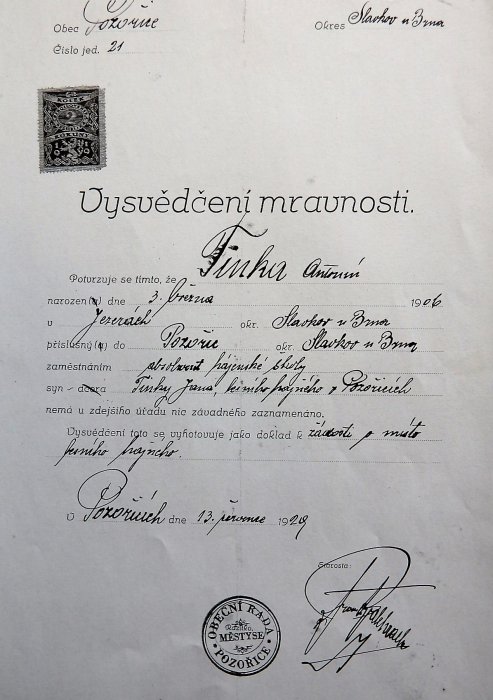 Obec Pozořice Okres Slavkov u Brna
Číslo jed. 21
2
Vysvědčení mravnosti.
Potvrzuje se tímto, že Finka Antonín
narozen(a) dne 3. března 1906
v Jezerách okr. Slavkov u Brna
příslušný(á) do Pozořic okr. Slavkov u Brna
zaměstnáním absolvent hájenské školy
syn - dcera Finky Jana, lesního hajného v Pozořicích
nemá u zdejšího úřadu nic závadného zaznamenáno.
Vysvědčení toto se vyhotovuje jako doklad k žádosti o místo
lesního hajného.
V Pozořicích dne 13. července 1929
Starosta:
OBECNÍ RADA
MĚSTYSE
POZOŘICE